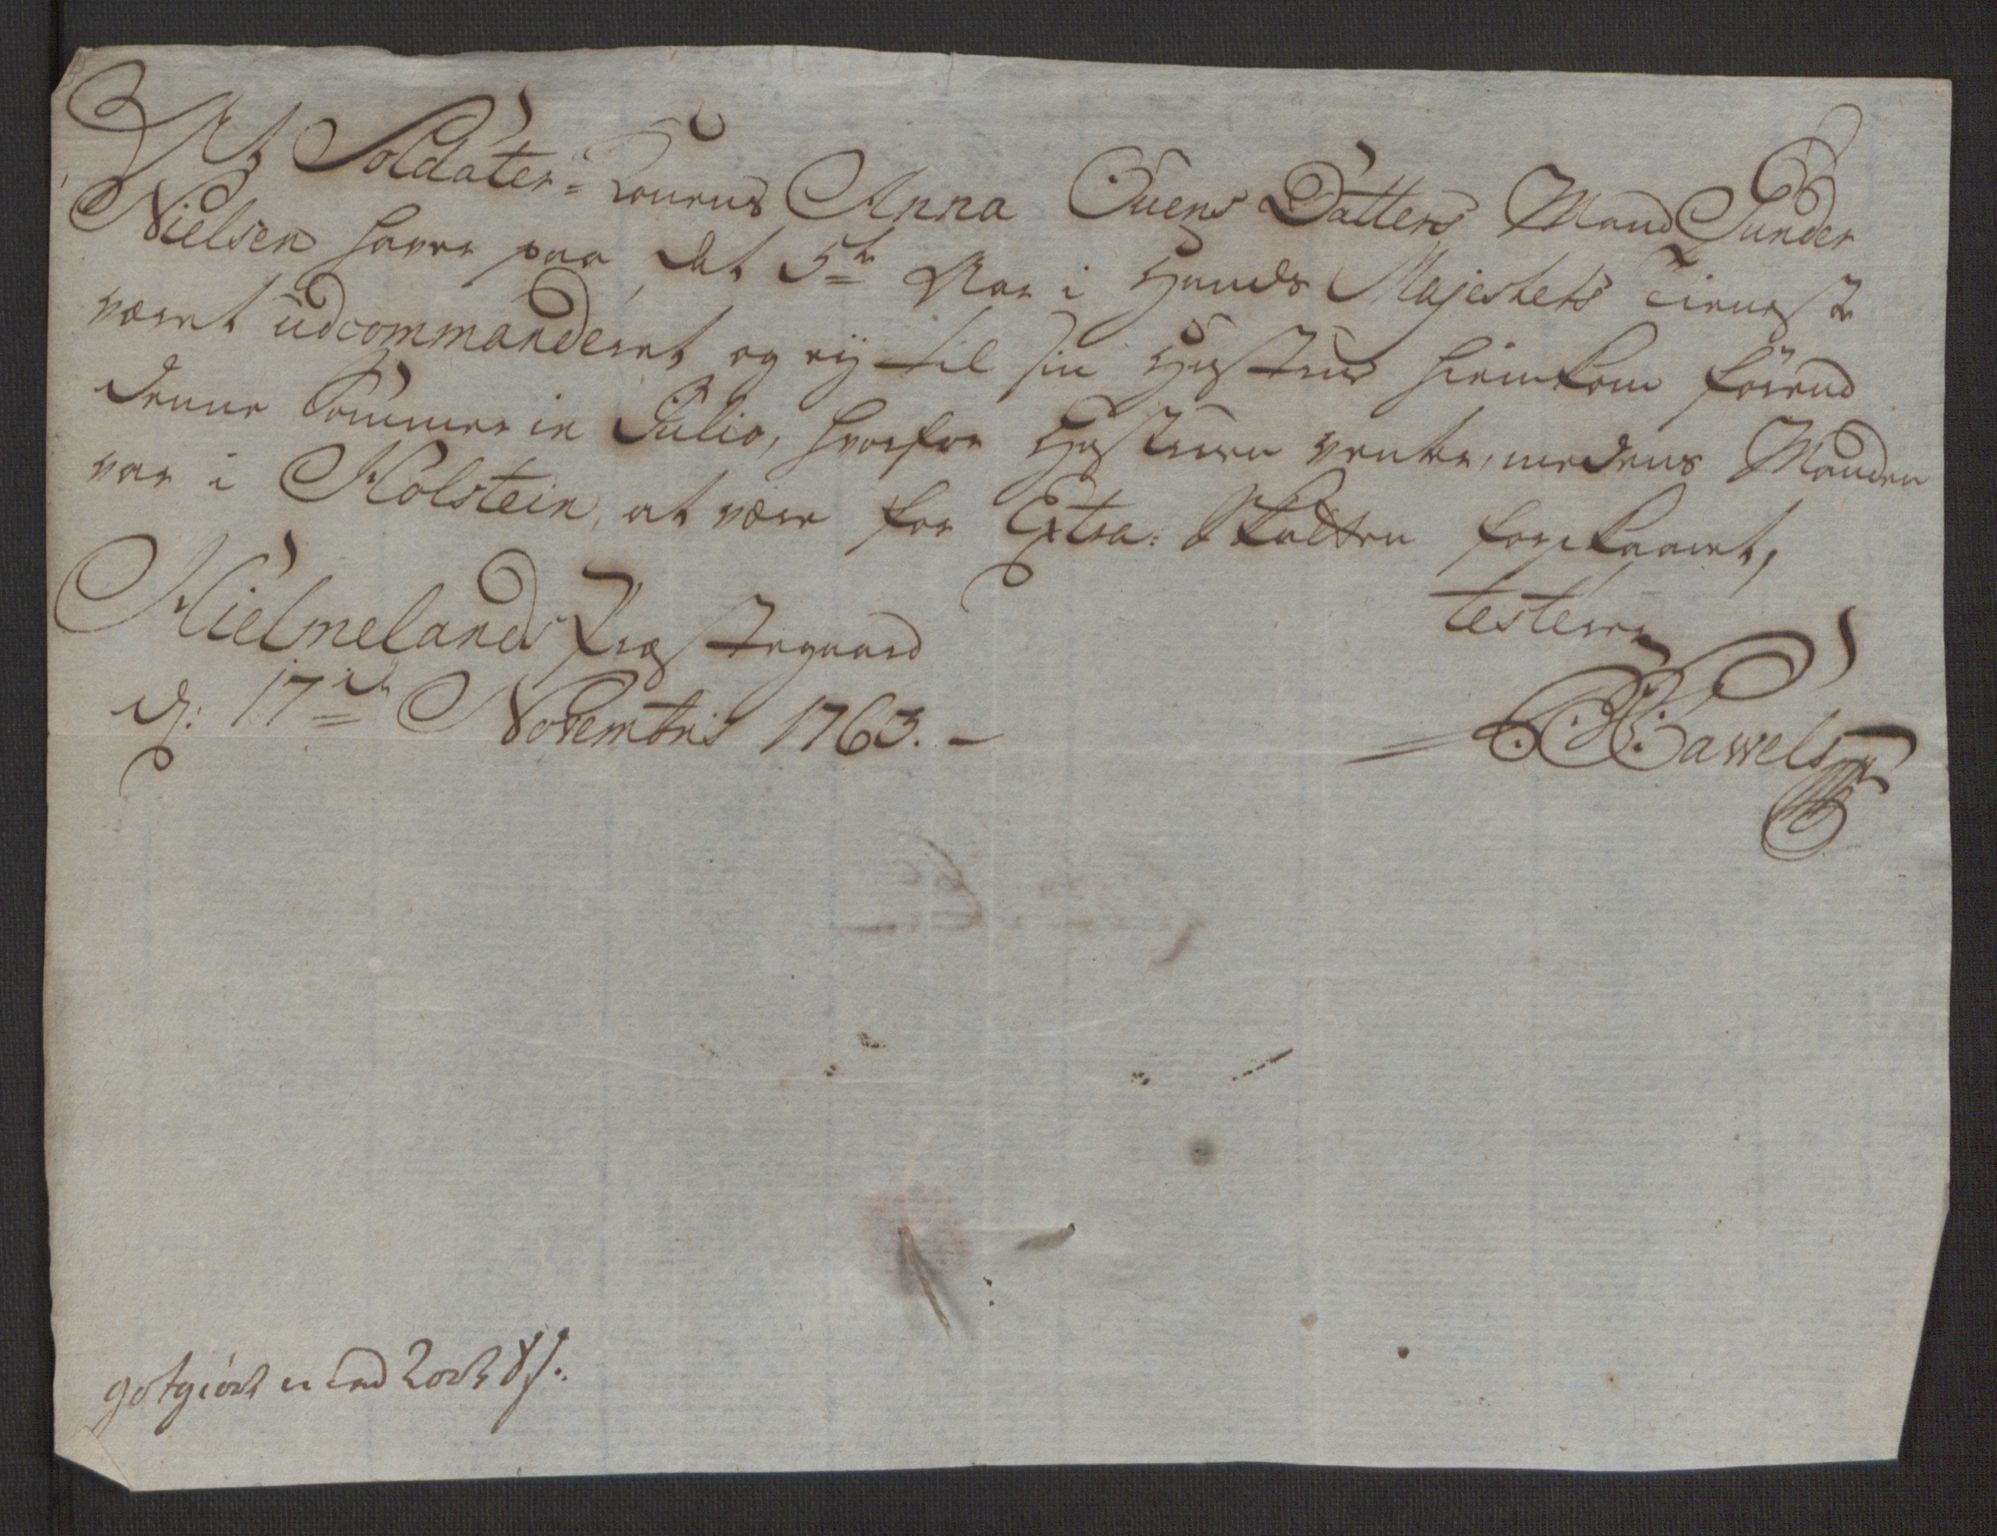 At Soldater-Konens Anna Ouens Datters Mand Gunder
Nielsen haver paa det 5te Aar i Hands Majestets Tieneste
været udcommanderet og ey til sin Hustrue hiemkom förend
denne Sommer in Julio, hvorfor Hustruen venter, medens Manden
var i Holstein, at være for Extra-Skatten forskaanet,
testerer
Hielmelands Præstegaard
d: 17de Novembris 1763. -
Pawelsen
gotgiort med